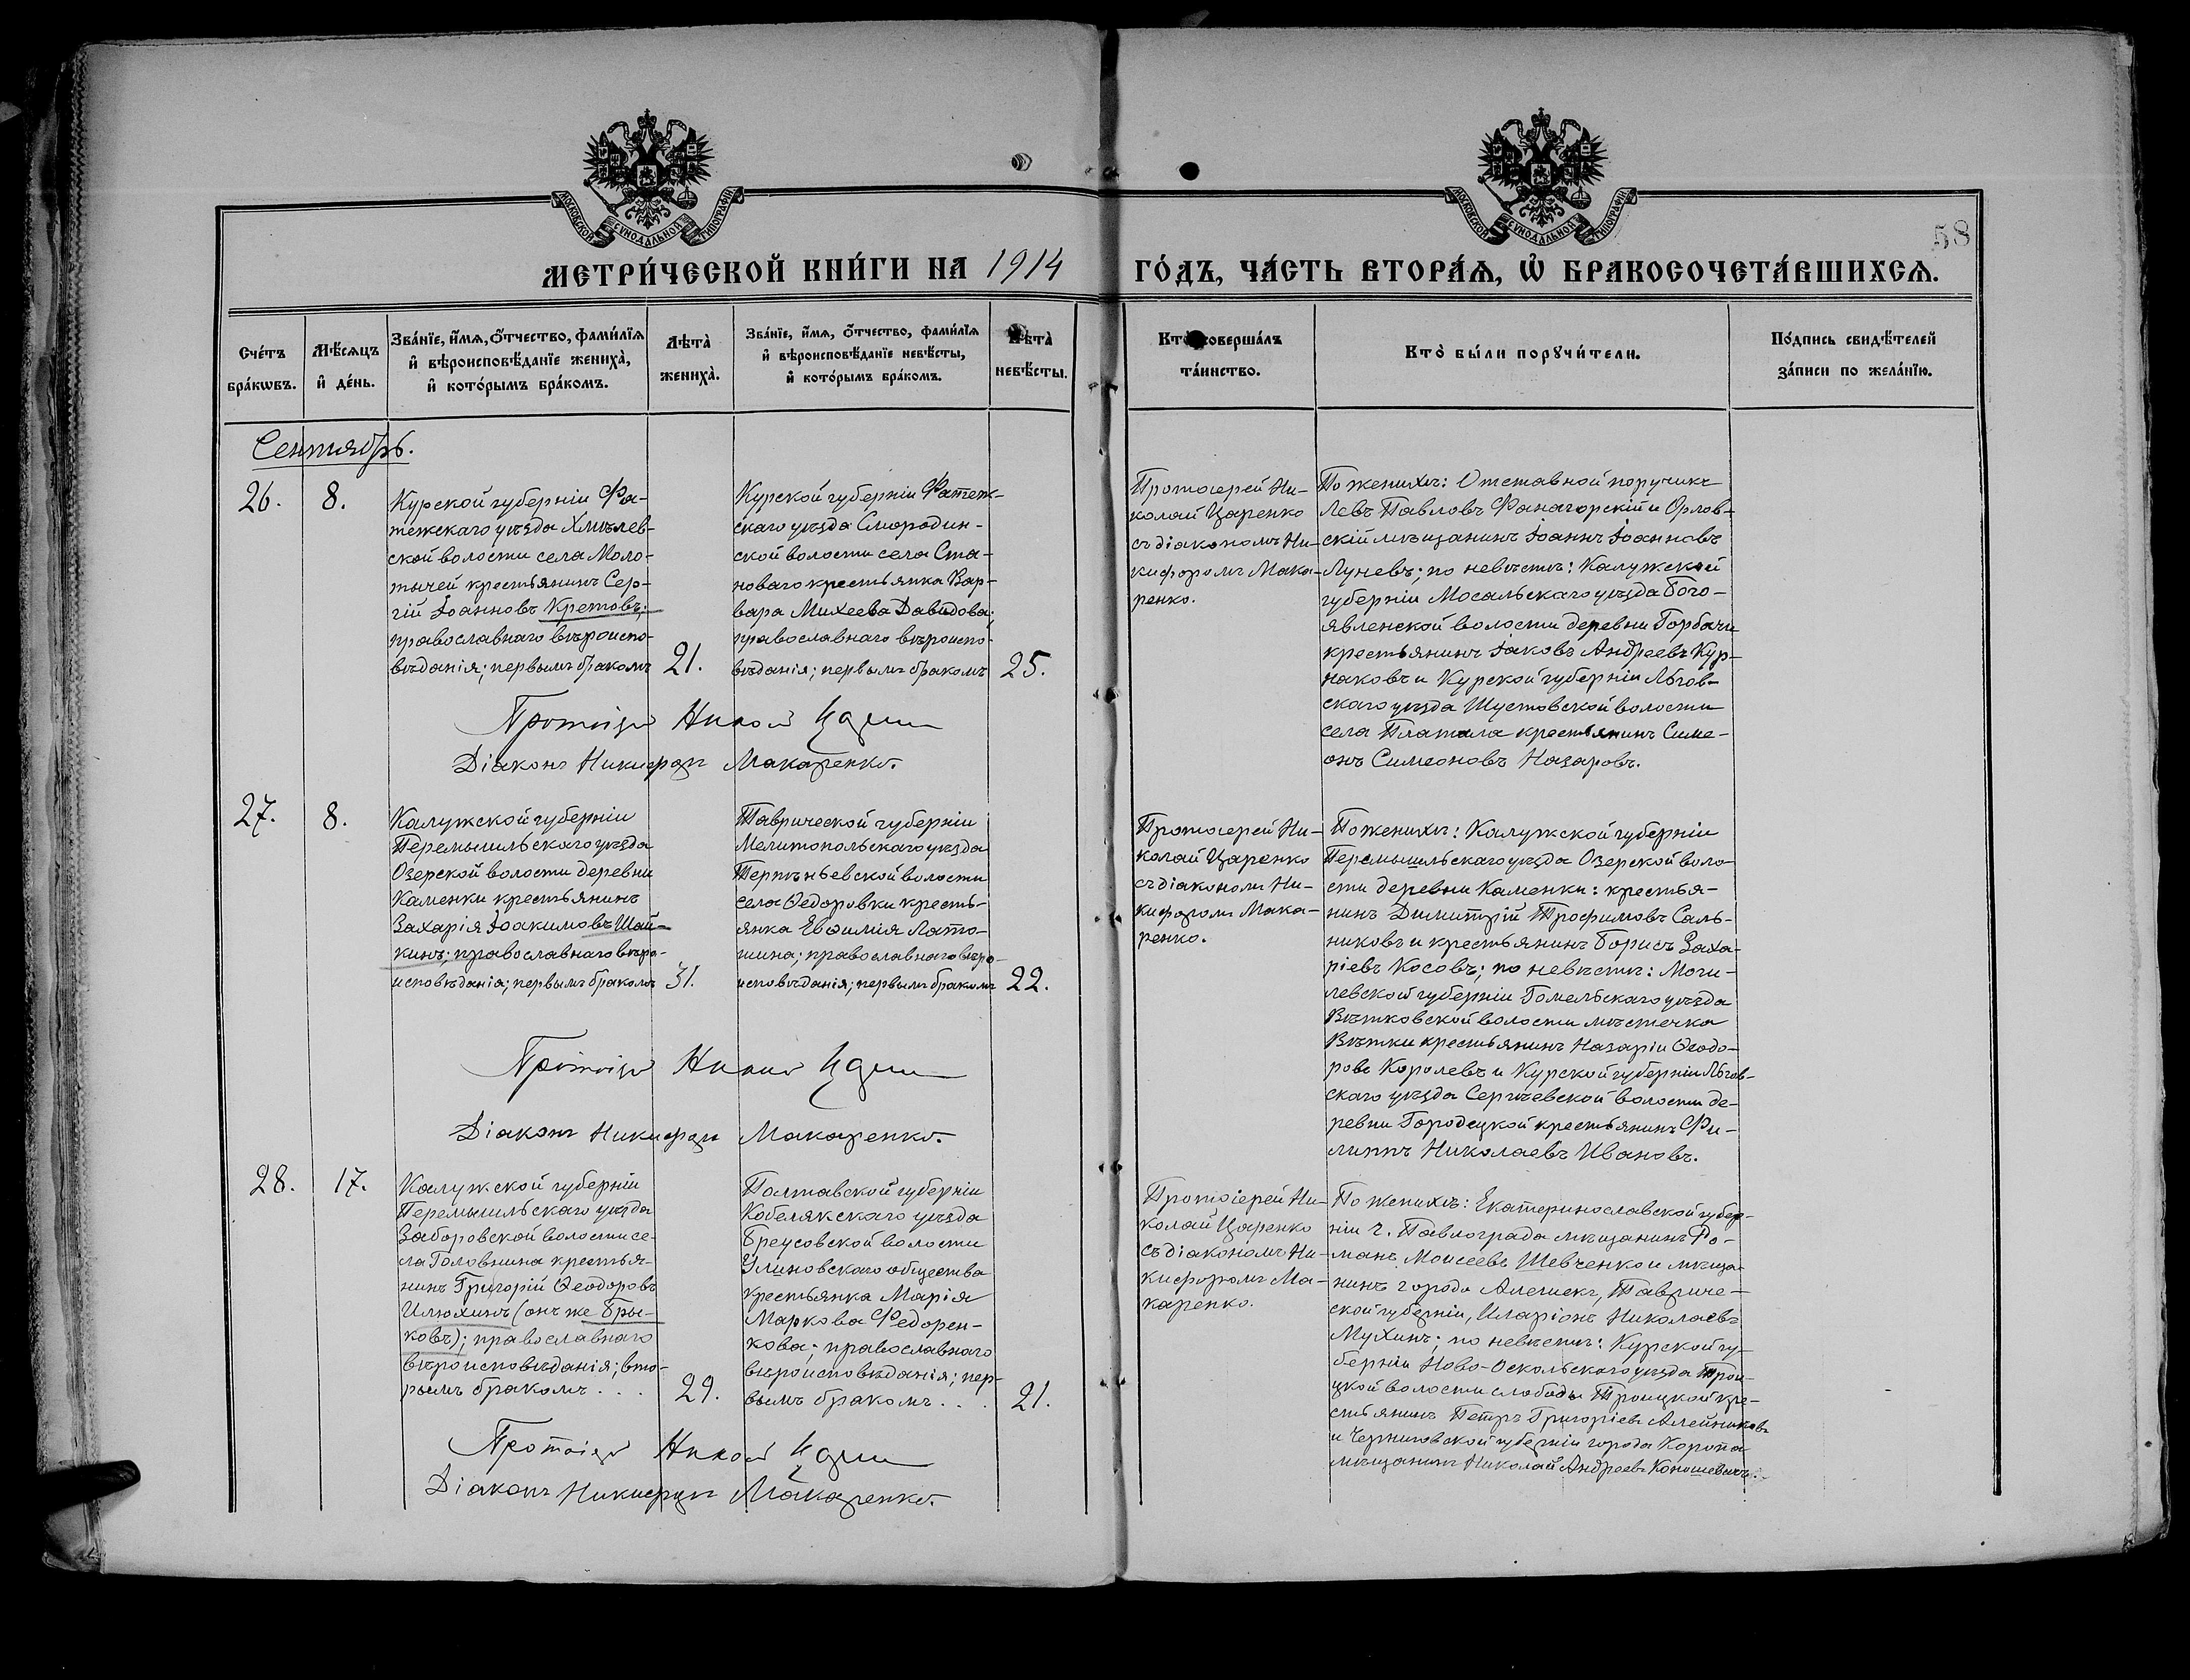 МОСКОВСКОЙ СѴНОДАЛЬНОЙ ТИПОГРАФІИ
МОСКОВСКОЙ СѴНОДАЛЬНОЙ ТИПОГРАФІИ
58
МЕТРИ́ЧЕСКОЙ КНИ́ГИ НА 1914 ГО́ДЪ, ЧА́СТЬ ВТОРА́Ѧ, Ѽ БРАКОСОЧЕТА́ВШИХСѦ.
Сче́тъ
бра́кѡвъ.
Мѣ́сѧцъ
и҆ де́нь.
Зва́нїе, и҆́мѧ, ѻ҆́тчество, фами́лїѧ
и҆ вѣроисповѣ́данїе жениха̀,
и҆ кото́рымъ бра́комъ.
Лѣта̀
жениха̀.
Зва́нїе, и҆́мѧ, ѻ҆́тчество, фами́лїѧ
и҆ вѣроисповѣ́данїе невѣ́сты,
и҆ кото́рымъ бра́комъ.
Лѣта̀
невѣ́сты.
Кто̀ соверша́лъ
та́инство.
Кто̀ бы́ли порꙋчи́тели.
По́дпись свидѣ́телей
за́писи по жела́нїю.
Сентябрь.
26.
8.
Курской губерніи Фа-
тежскаго уѣзда Хмѣлев-
ской волости села Моло-
тычей крестьянинъ Сер-
гій Іоанновъ Кретовъ;
православнаго вѣроиспо-
вѣданія; первымъ бракомъ
21.
Курской губерніи Фатеж-
скаго уѣзда Смородин-
ской волости села Ста-
новаго крестьянка Вар-
вара Михеева Давидова;
православнаго вѣроиспо-
вѣданія; первымъ бракомъ
25.
Протоіерей Ни-
колай Царенко
съ діакономъ Ни-
кифоромъ Мака-
ренко.
По женихѣ: Отставной поручикъ
Левъ Павловъ Фанагорскій и Орлов-
скій мѣщанинъ Іоаннъ Іоанновъ
Луневъ; по невѣстѣ: Калужской
губерніи Мосальскаго уѣзда Бого-
явленской волости деревни Горбачи
крестьянинъ Іаковъ Андреевъ Кур-
наковъ и Курской губерніи Льгов-
скаго уѣзда Шустовской волости
села Платала крестьянинъ Симе-
онъ Симеоновъ Назаровъ.
Протоіер Никол Царен
Діаконъ Никифоръ Макаренко.
27.
8.
Калужской губерніи
Перемышльскаго уѣзда
Озерской волости деревни
Каменки крестьянинъ
Захарія Іоакимовъ Шай-
кинъ; православнаго вѣро-
исповѣданія; первымъ бракомъ
31.
Таврической губерніи
Мелитопольскаго уѣзда
Терпѣньевской волости
села Ѳедоровки кресть-
янка Евѳимія Лато-
шина; православнаго вѣро-
исповѣданія; первымъ бракомъ
22.
Протоіерей Ни-
колай Царенко
съ діакономъ Ни-
кифоромъ Мака-
ренко.
По женихѣ: Калужской губерніи
Перемышльскаго уѣзда Озерской воло-
сти деревни Каменки: крестья-
нинъ Димитрій Трофимовъ Саль-
никовъ и крестьянинъ Борисъ Заха-
ріевъ Косовъ; по невѣстѣ: Моги-
левской губерніи Гомельскаго уѣзда
Вѣтковской волости мѣстечка
Вѣтки крестьянинъ Назарій Ѳеодо-
ровъ Королевъ и Курской губерніи Льгов-
скаго уѣзда Сергіевской волости де-
ревни Городецкой крестьянинъ Фи-
липпъ Николаевъ Ивановъ.
Протоіер Никол Царен
Діаконъ Никифоръ Макаренко.
28.
17.
Калужской губерніи
Перемышльскаго уѣзда
Заборовской волости се-
ла Головнина крестья-
нинъ Григорій Ѳеодоровъ
Илюхинъ (онъ же Бры-
ковъ); православнаго
вѣроисповѣданія; вто-
рымъ бракомъ . . .
29.
Полтавской губерніи
Кобелякскаго уѣзда
Бреусовской волости
Улиновскаго общества
крестьянка Марія
Маркова Федорен-
кова; православнаго
вѣроисповѣданія; пер-
вымъ бракомъ . . .
21.
Протоіерей Ни-
колай Царенко
съ діакономъ Ни-
кифоромъ Ма-
каренко.
По женихѣ: Екатеринославской губер-
ніи г. Павлограда мѣщанинъ Ро-
манъ Моисеевъ Шевченко и мѣща-
нинъ города Алешекъ, Тавриче-
ской губерніи, Иларіонъ Николаевъ
Мухинъ; по невѣстѣ: Курской гу-
берніи Ново-Оскольскаго уѣзда Трои-
цкой волости слободы Троицкой кре-
стьянинъ Петръ Григоріевъ Алейниковъ
и Черниговской губерніи города Коропа
мѣщанинъ Николай Андреевъ Коношевичъ.
Протоіер Никол Царен
Діаконъ Никифоръ Макаренко.